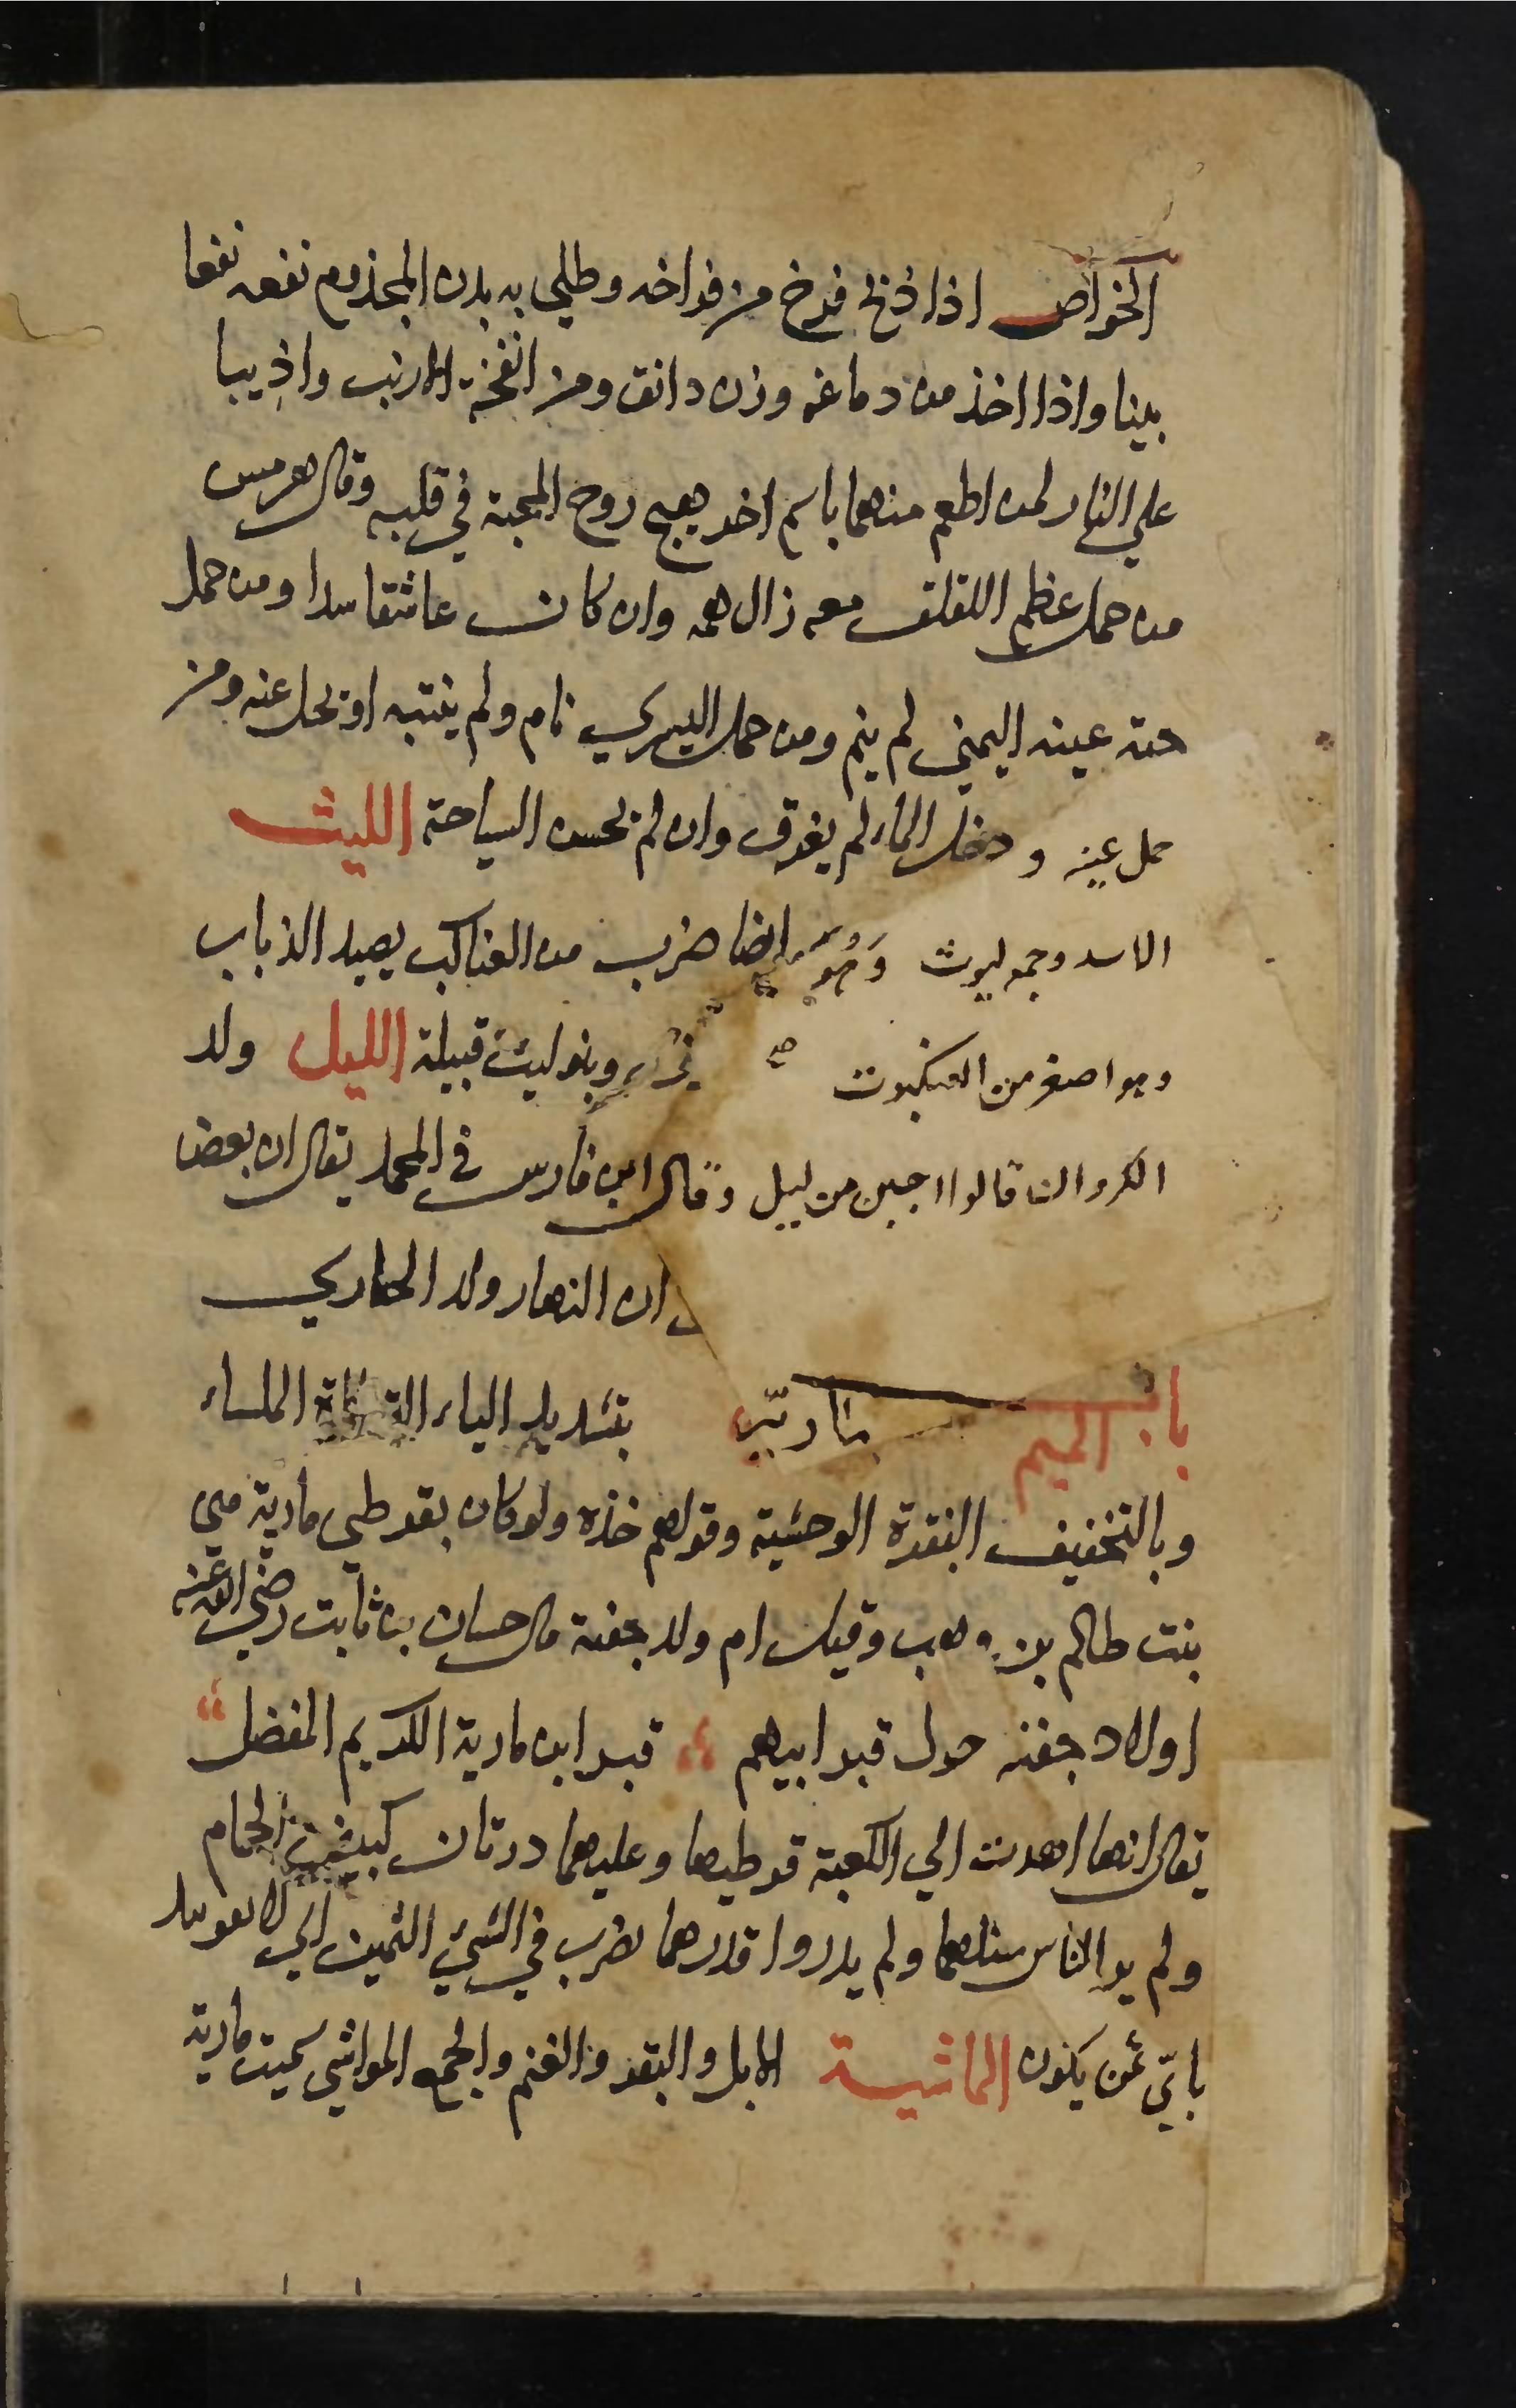 الخواص اذا ذبح فرخ من فراخه وطلي به بدن المجذوم نفعه نفعا
بينا واذا اخذ من دماغه وزن دانق ومن انفحة الارنب واذيبا
علي النار لمن اطعم منهما باسم اخر هيج روح المحبة في قلبه وقال هرمس
من حمل عظم اللقلق معه زال همه وان كان عاشقا سلا ومن حمل
حدقة عينه اليمني لم ينم ومن حمل اليسري نام ولم ينتبه او تحل عنه ومن
حمل عينه ودخل الماء لم يغرق وان لم يحسن السباحة الليث
الاسد وجمعه ليوث وهو ايضا ضرب من العناكب يصيد الذباب
وهو اصغر من العنكبوت وبنو ليث قبيلة الليل ولد
الكروان قالوا اجبن من ليل وقال ابن فارس في المجمل يقال ان بعض
ان النهار ولد الحباري
باب الميم مارية بتشديد الياء القطاة الملساء
وبالتخفيف البقرة الوحشية وقولهم خذه ولو كان بقرطي مارية هي
بنت ظالم بن وهب وقيل ام ولد جفنة قال حسان بن ثابت رضي الله عنه
اولاد جفنه حول قبر ابيهم قبر ابن مارية الكريم المفضل
يقال انها اهدت الي الكعبة قرطيها وعليهما درتان كبيضتي الحمام
ولم ير الناس مثلهما ولم يدروا قدرهما يضرب في الشيء الثمين اي لا يفوتنك
باي ثمن يكون الماشية الابل والبقر والغنم والجمع المواشي سميت مارية